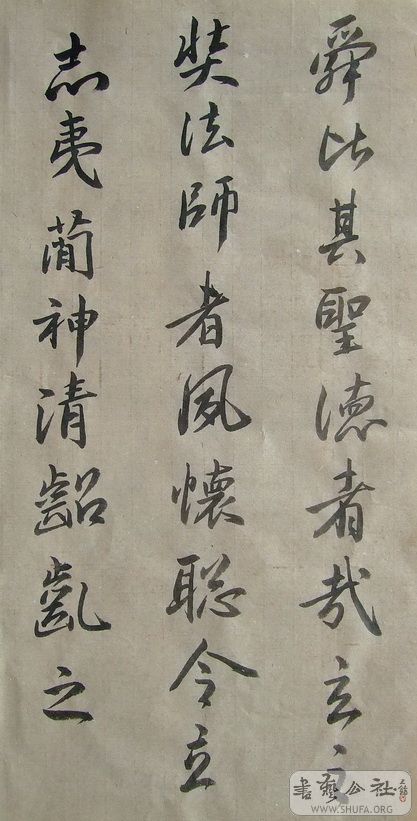 舜比其聖德者哉玄
奘法師者夙懷聰令立
志夷簡神清齠齔之
書藝公社
WWW.SHUFA.ORG